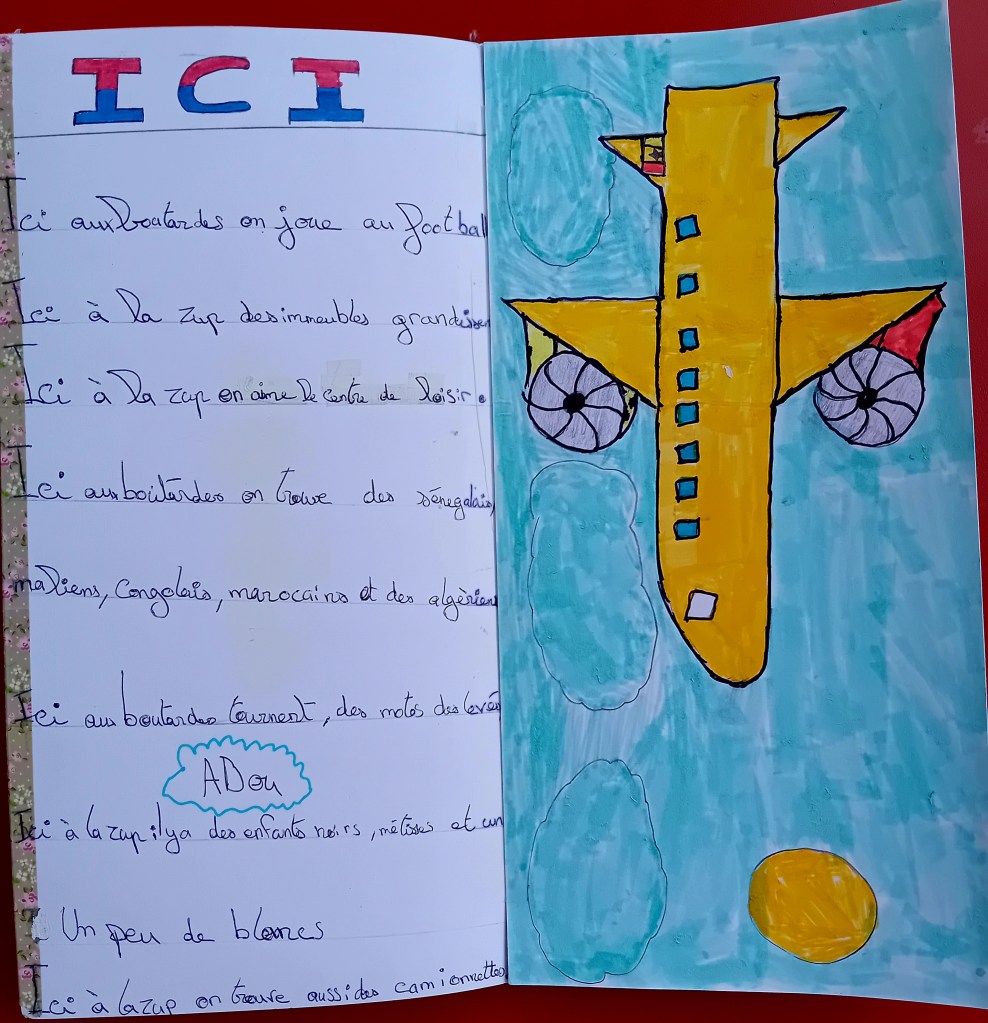 ICI
Ici aux Boutardes on joue au football
Ici à la zup des immeubles grandissen
Ici à la zup on aime le centre de loisir.
Ici aux boutardes on trouve des sénegalais,
maliens, Congolais, marocains et des algérien
Ici aux boutardes tournent, des motos des levées
ADou
Ici à la zup il y a des enfants noirs, métisses et un
Un peu de blancs
Ici à la zup on trouve aussi des camionnettes